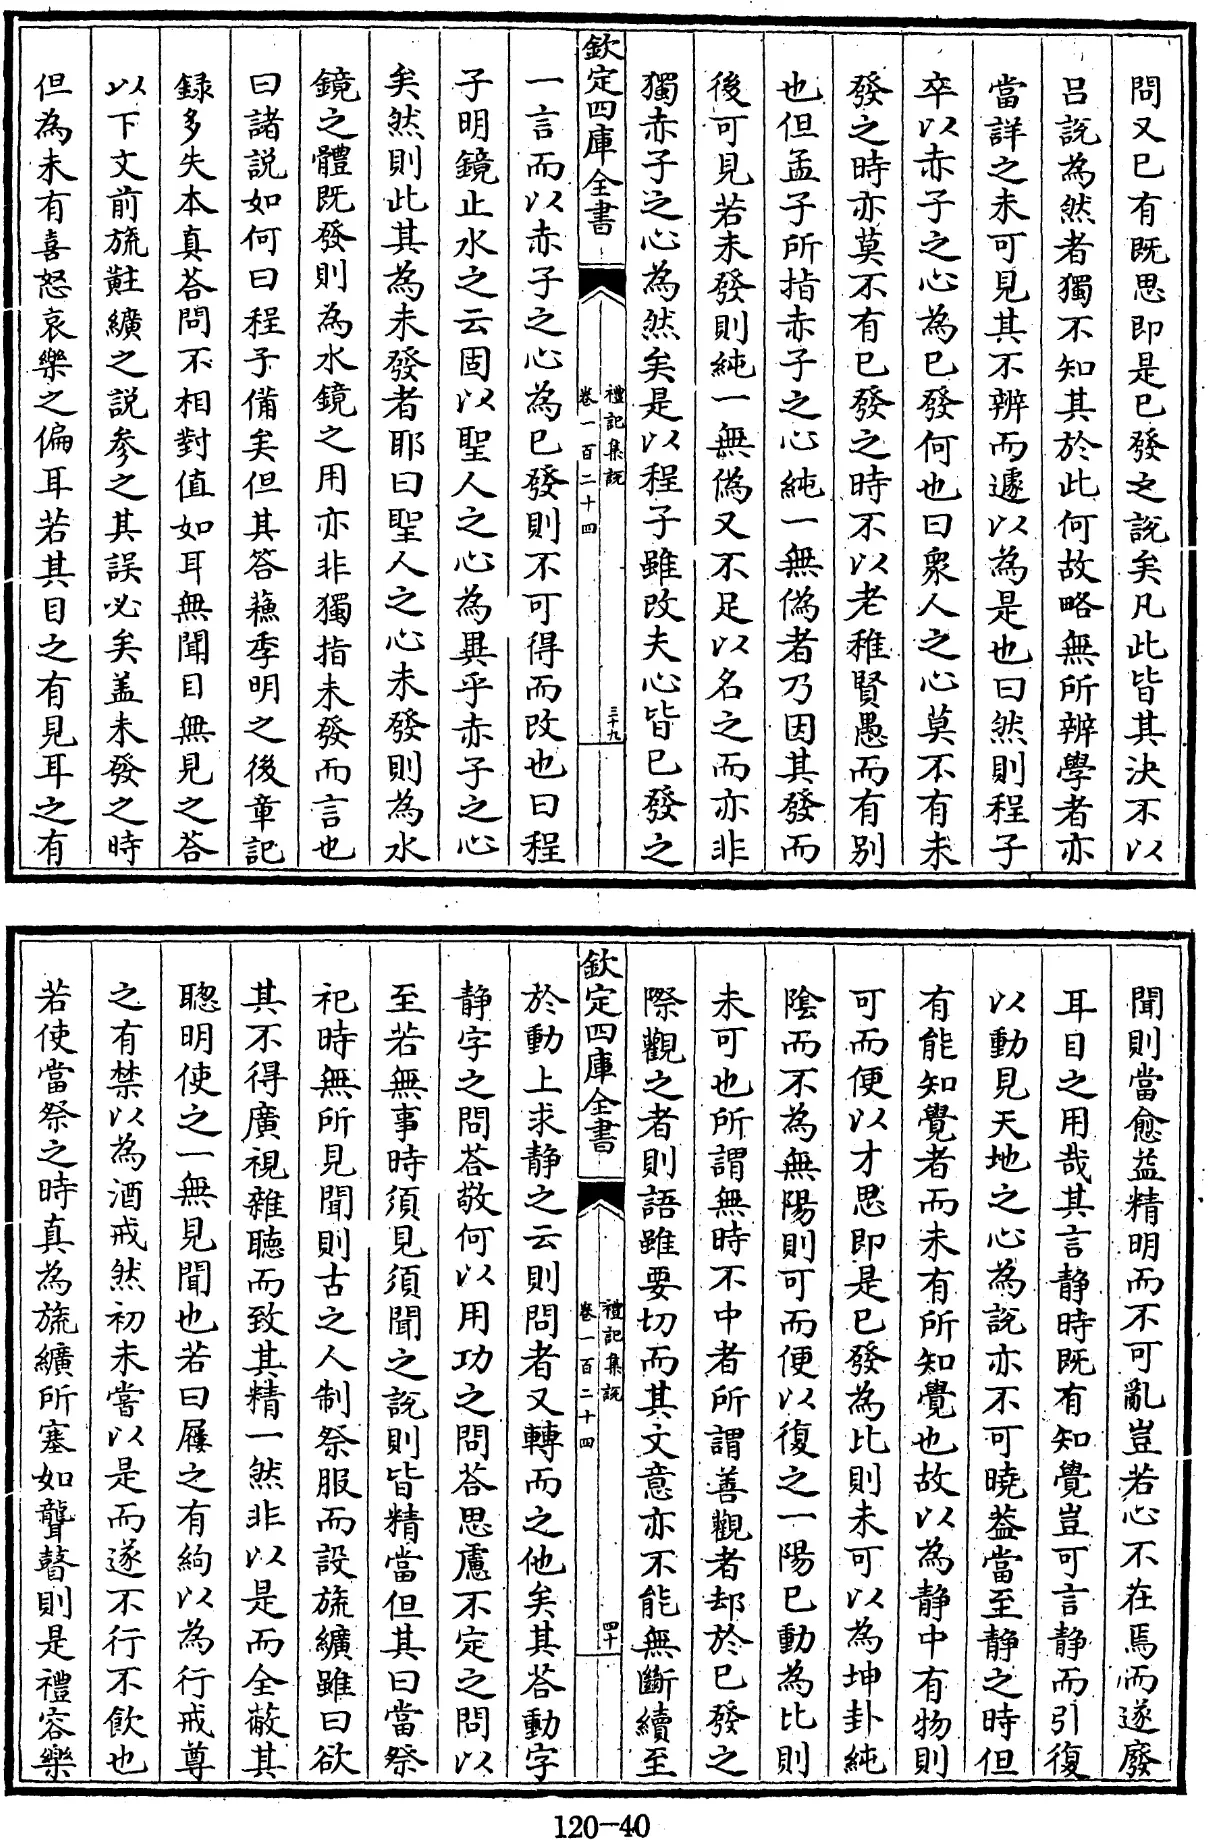 問又已有既思即是已發之說矣凡此皆其決不以
呂說為然者獨不知其於此何故略無所辨學者亦
當詳之未可見其不辨而遽以為是也曰然則程子
卒以赤子之心為已發何也曰衆人之心莫不有未
發之時亦莫不有已發之時不以老稚賢愚而有别
也但孟子所指赤子之心純一無偽者乃因其發而
後可見若未發則純一無偽又不足以名之而亦非
獨赤子之心為然矣是以程子雖改夫心皆已發之
欽定四庫全書
禮記集說
卷一百二十四
三十九
一言而以赤子之心為已發則不可得而改也曰程
子明鏡止水之云固以聖人之心為異乎赤子之心
矣然則此其為未發者耶曰聖人之心未發則為水
鏡之體既發則為水鏡之用亦非獨指未發而言也
曰諸説如何曰程子備矣但其答蘓季明之後章記
録多失本真答問不相對值如耳無聞目無見之答
以下文前旒黈纊之說參之其誤必矣盖未發之時
但為未有喜怒哀樂之偏耳若其目之有見耳之有
聞則當愈益精明而不可亂豈若心不在焉而遂廢
耳目之用哉其言静時既有知覺豈可言静而引復
以動見天地之心為說亦不可曉葢當至静之時但
有能知覺者而未有所知覺也故以為静中有物則
可而便以才思即是已發為比則未可以為坤卦純
陰而不為無陽則可而便以復之一陽已動為比則
未可也所謂無時不中者所謂善觀者却於已發之
際觀之者則語雖要切而其文意亦不能無斷續至
欽定四庫全書
禮記集說
卷一百二十四
四十
於動上求静之云則問者又轉而之他矣其答動字
静字之問答敬何以用功之問答思慮不定之問以
至若無事時須見須聞之說則皆精當但其曰當祭
祀時無所見聞則古之人制祭服而設旒纊雖曰欲
其不得廣視雜聽而致其精一然非以是而全蔽其
聰明使之一無見聞也若曰屨之有絇以為行戒尊
之有禁以為酒戒然初未嘗以是而遂不行不飲也
若使當祭之時真為旒纊所塞如聾瞽則是禮容樂
120-40